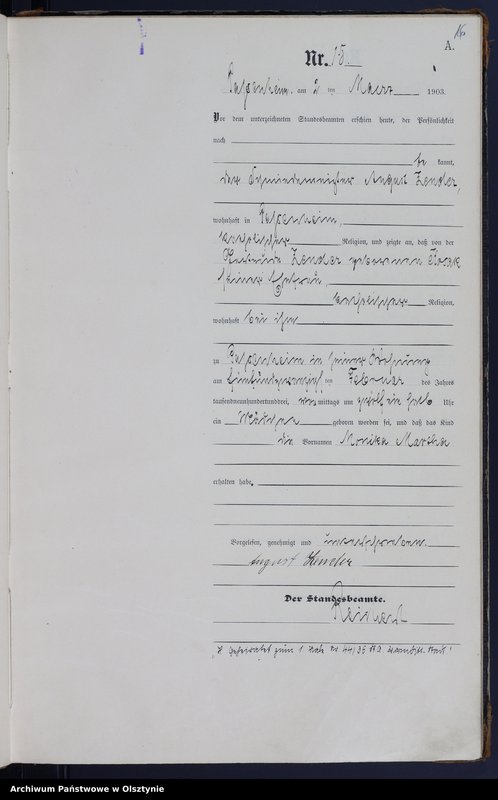 16
A.
Nr. 15.
Passenheim, am 2 ten Maerz 1903.
Vor dem unterzeichneten Standesbeamten erschien heute, der Persönlichkeit
nach
be kannt,
der Schmiedemeister August Zendler,
wohnhaft in Passenheim,
katholischer Religion, und zeigte an, daß von der
Zendler geborenen
seiner Ehefrau,
katholischer Religion,
wohnhaft bei ihm
zu Passenheim in seiner Wohnung
am fünfundzwanzigsten Februar des Jahres
tausendneunhundertunddrei, vormittags um zwölf ein halb Uhr
ein Mädchen geboren worden sei, und daß das Kind
die Vornamen Monika Martha
erhalten habe.
Vorgelesen, genehmigt und unterschrieben
August Zendler
Der Standesbeamte.
Geheiratet zum 1 Male Nr 44/35
Archiwum Państwowe w Olsztynie